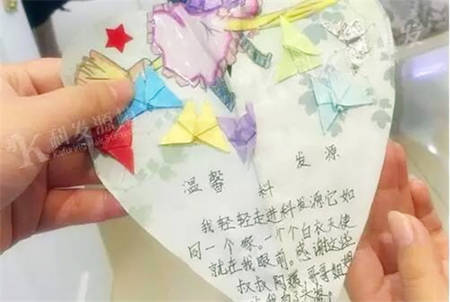 科发源
温馨 科 发源
我轻轻走进科发源它如
同一个 。一个个白衣天使
就在我眼前。感谢这些
叔叔阿姨、哥哥姐姐